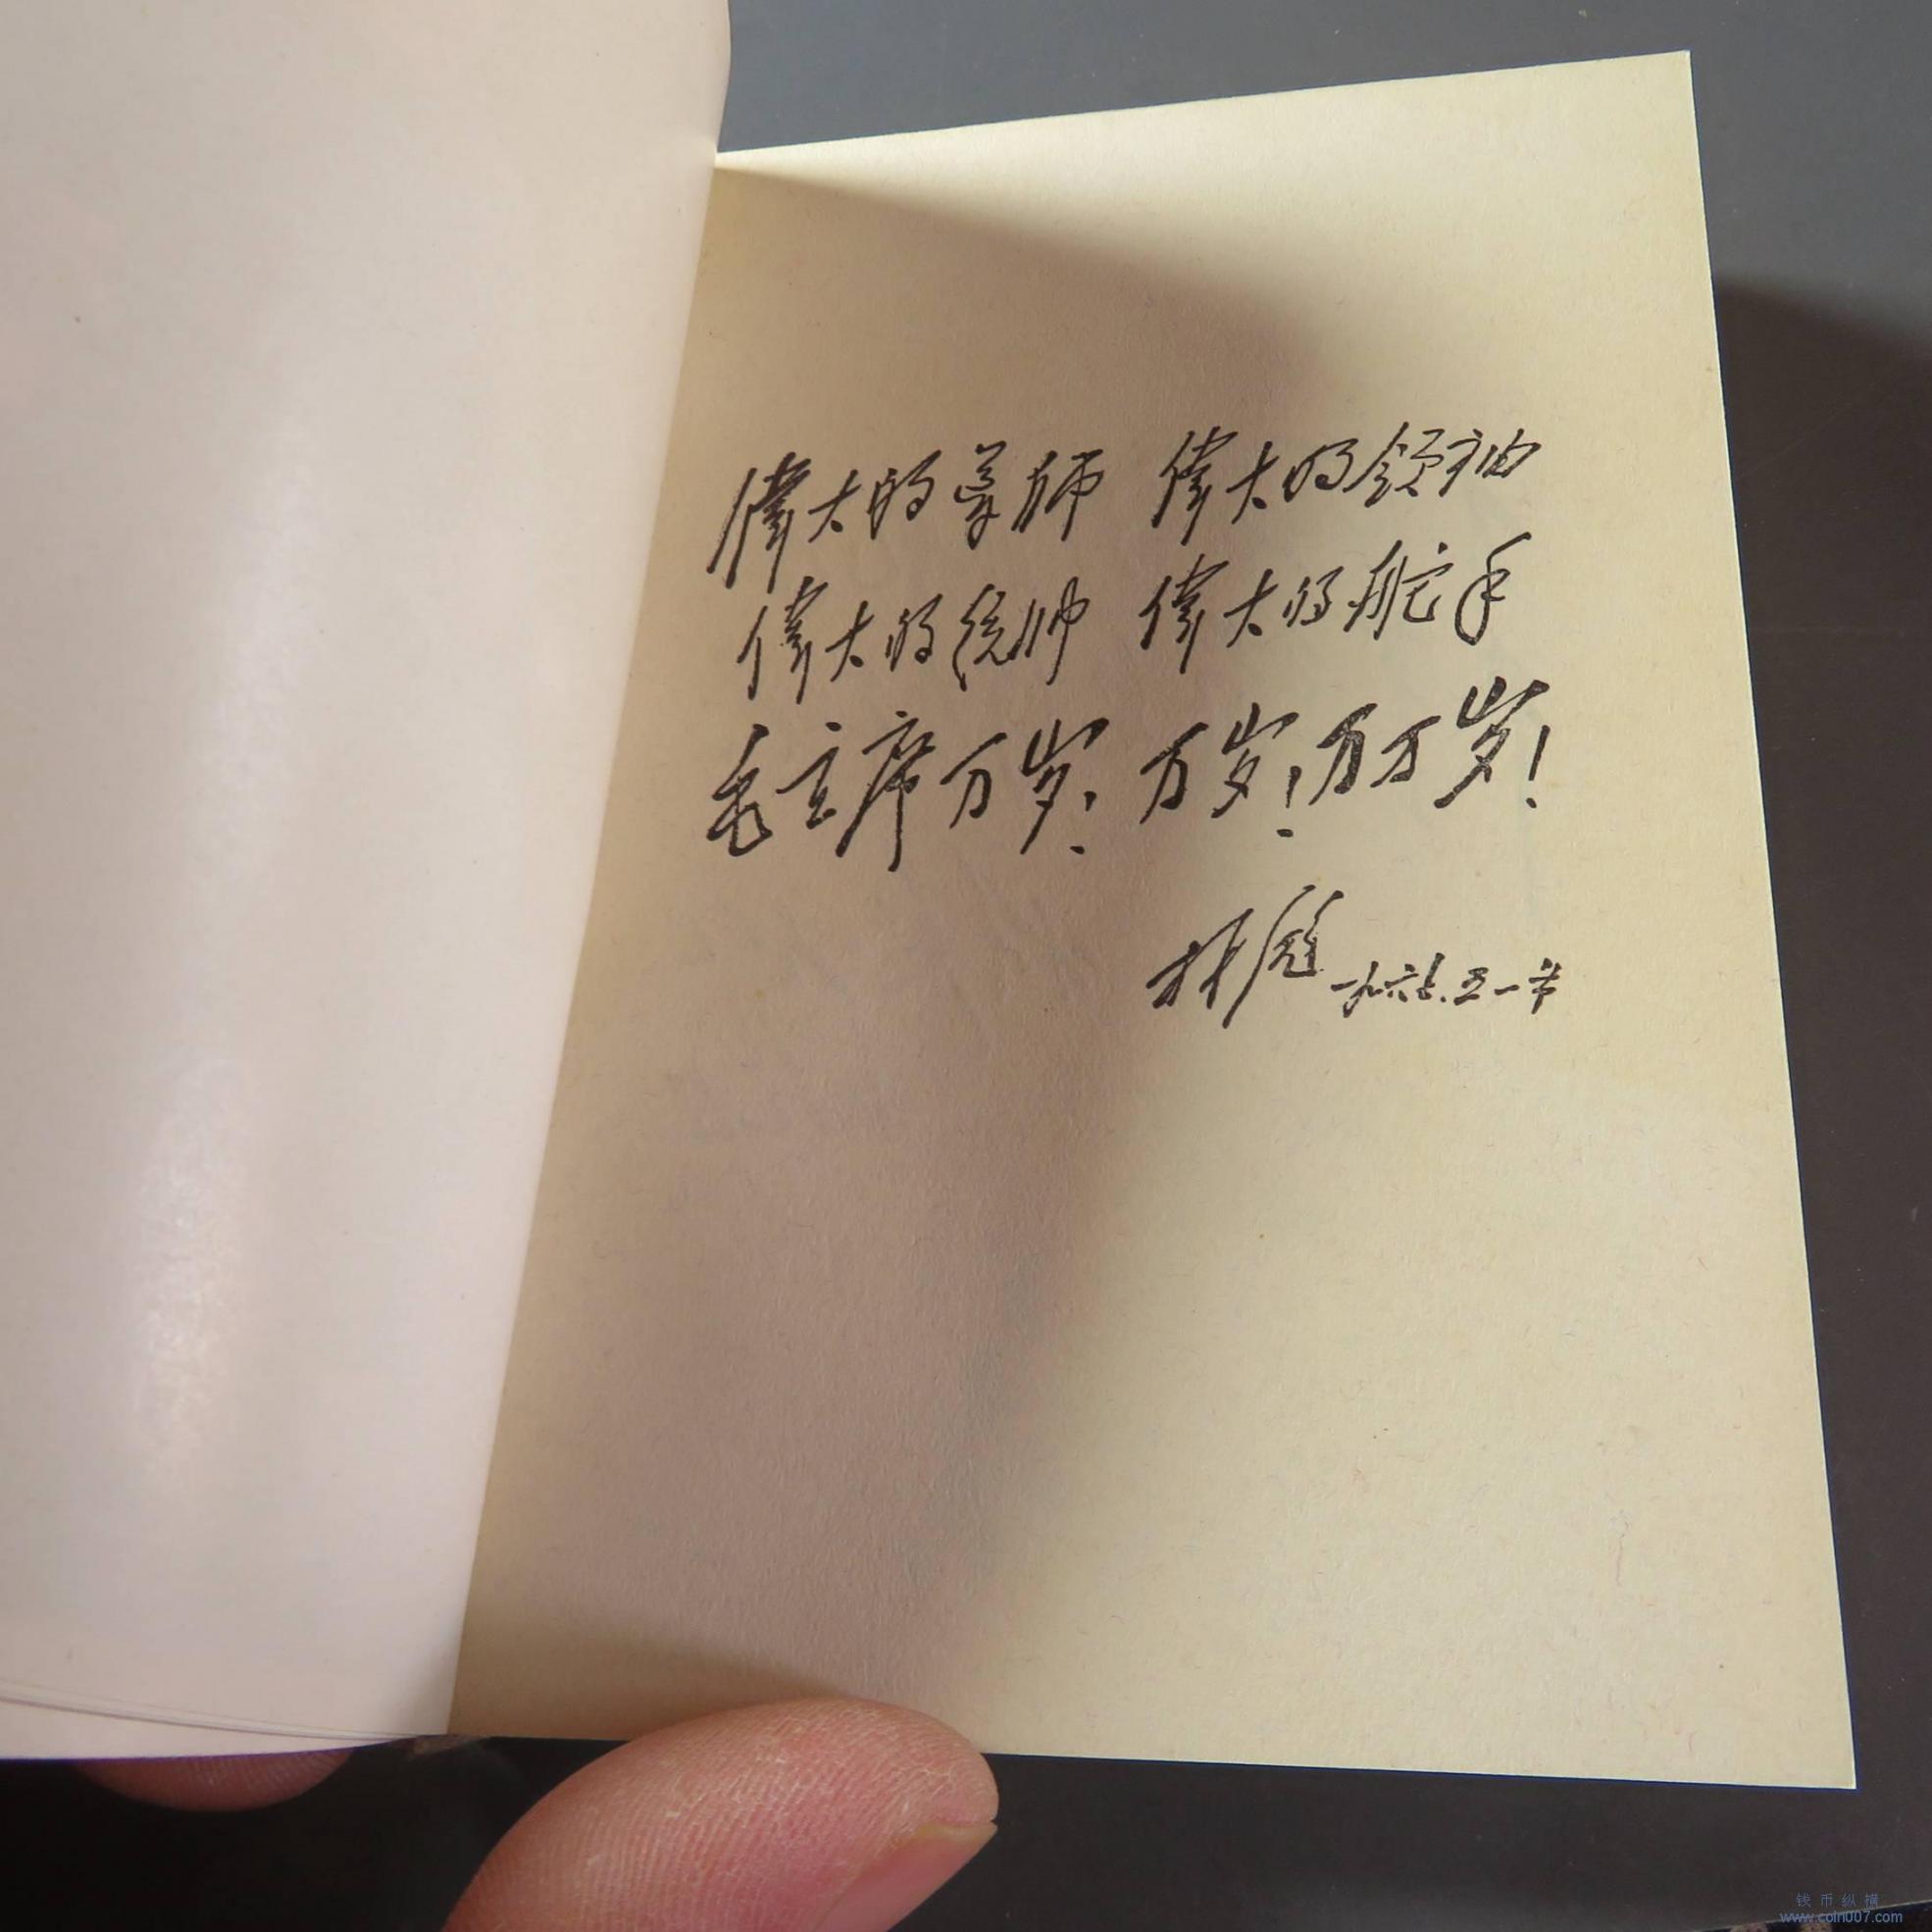 偉大的导师 偉大的领袖
偉大的统帅 偉大的舵手
毛主席万岁！万岁！万万岁！
林彪 一九六七.五一节
钱币纵横
www.coin007.com